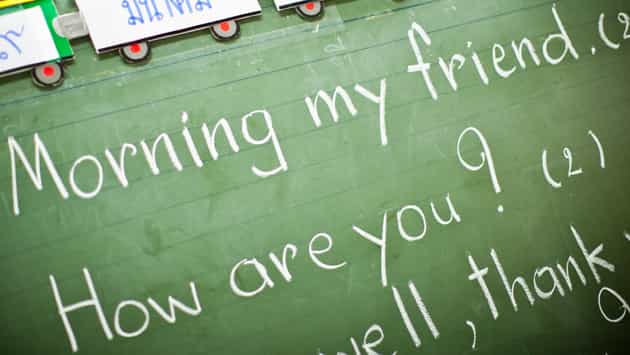 มีนาคม
Morning my friend. (2
How are you? (2)
well, thank